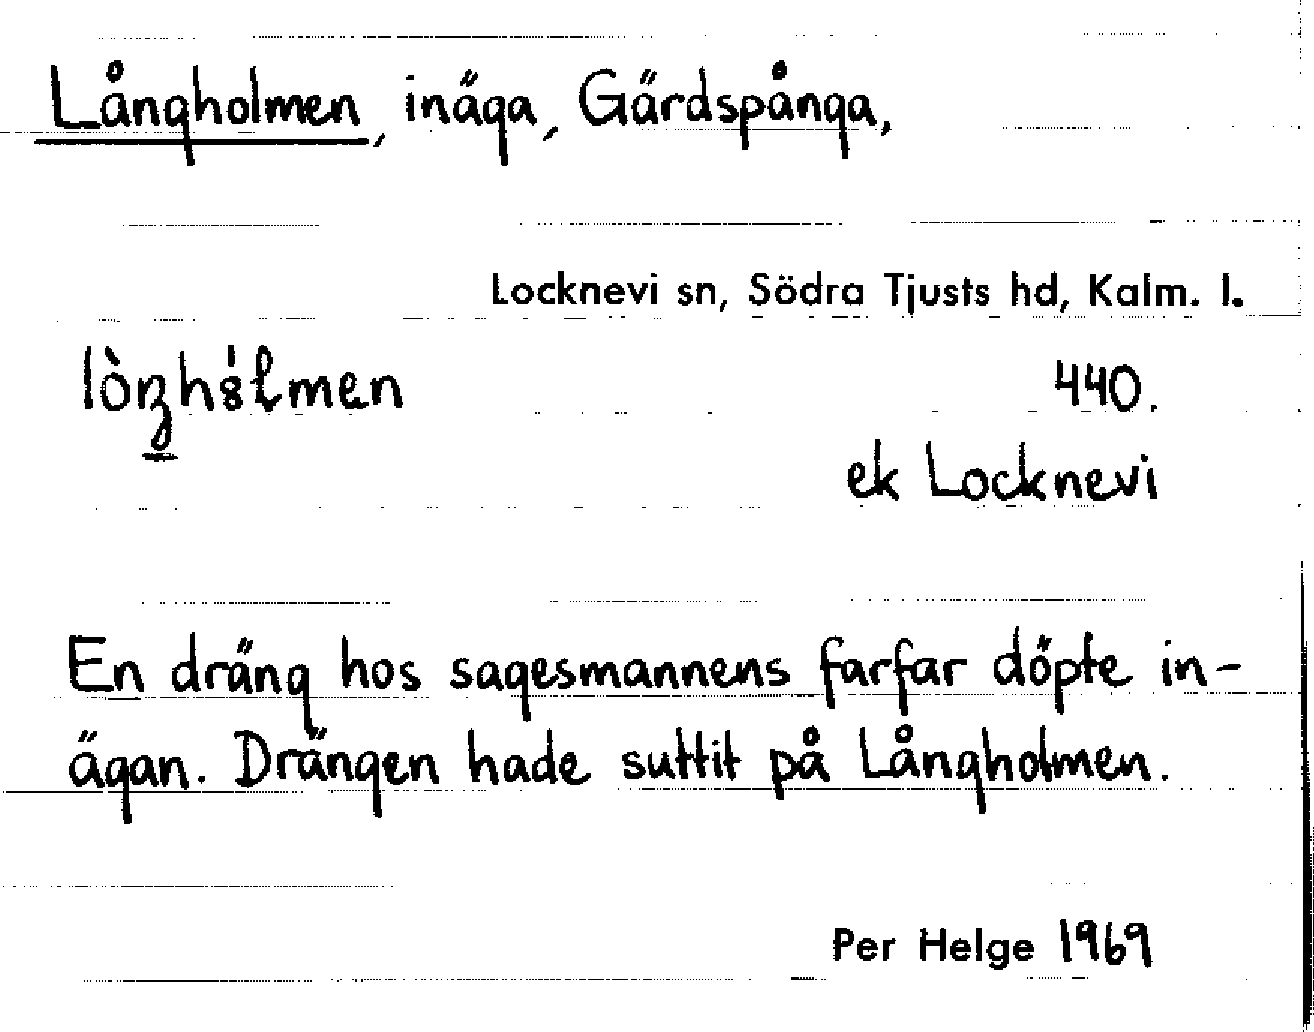 Långholmen, inäga, Gärdspånga,
Locknevi sn, Södra Tjusts hd, Kalm. l.
440.
ek Locknevi
En dräng hos sagesmannens farfar döpte in-
ägan. Drängen hade suttit på Långholmen.
Per Helge 1969